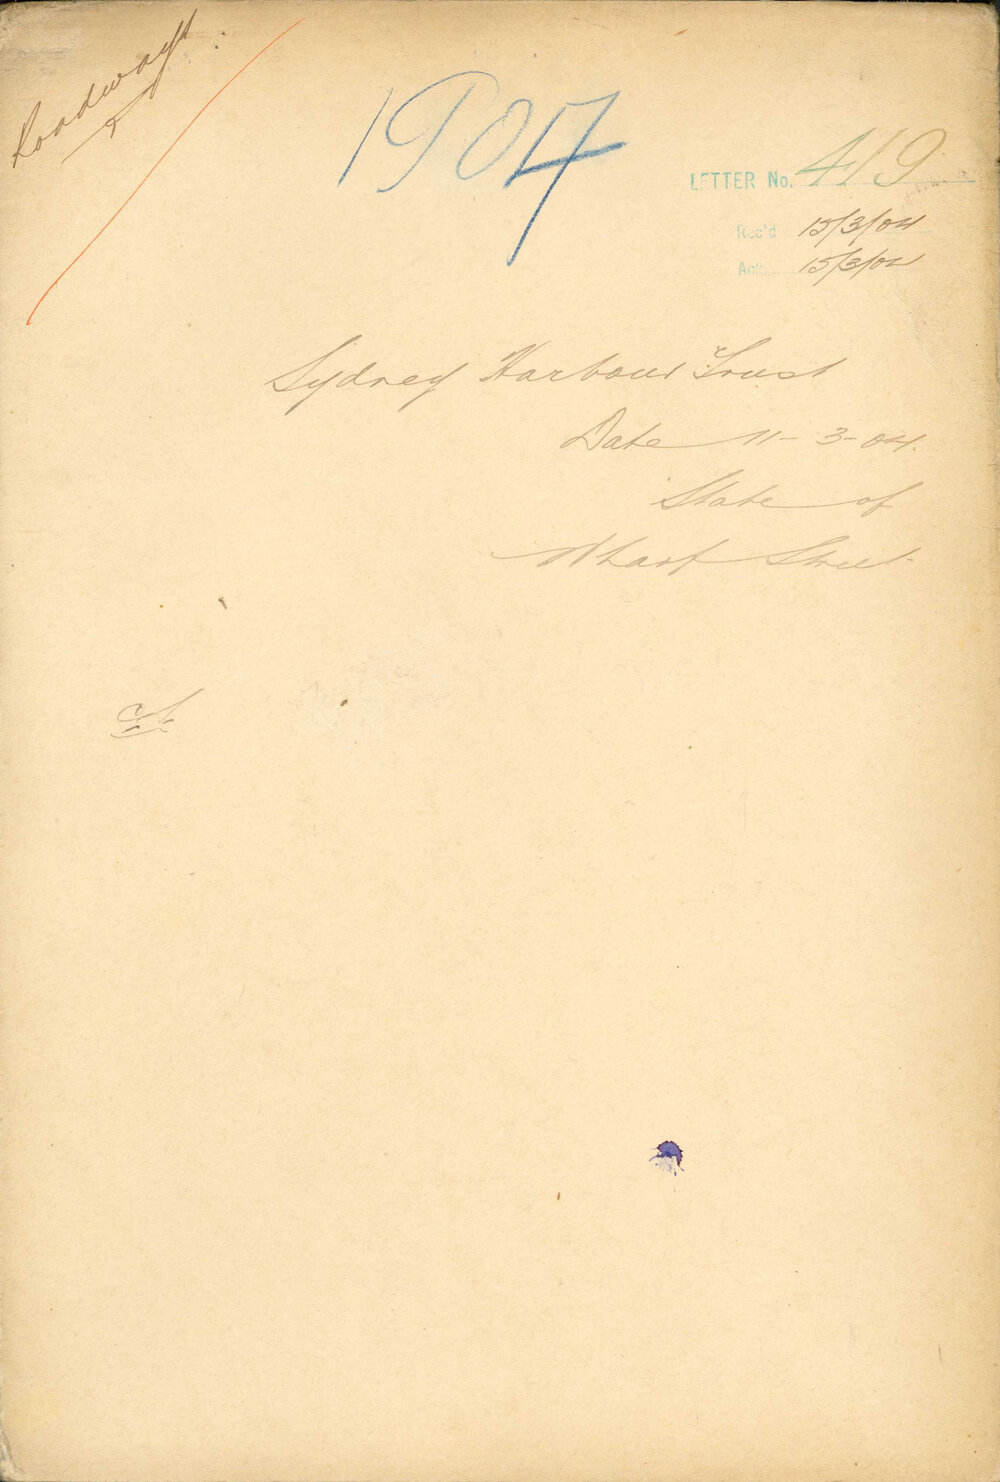 Roadways
1904
LETTER No. 419
Rec'd 15/3/04
Ack. 15/3/04
Sydney Harbour Trust
Date 11-3-04.
State of
Wharf Street